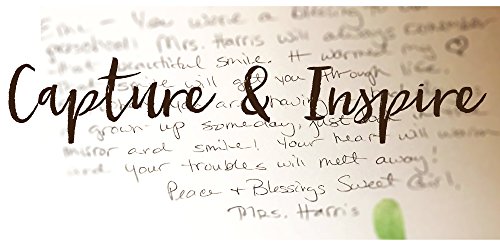 You were a blessing to
preschool. Mrs. Harris will always remember
that beautiful smile. It warmed my ♡
smile will get you through life.
Capture & Inspire
are
grown up someday, just
mirror and smile! Your heart will warm
and your troubles will melt away!
Peace + Blessings Sweet Girl,
Mrs. Harris